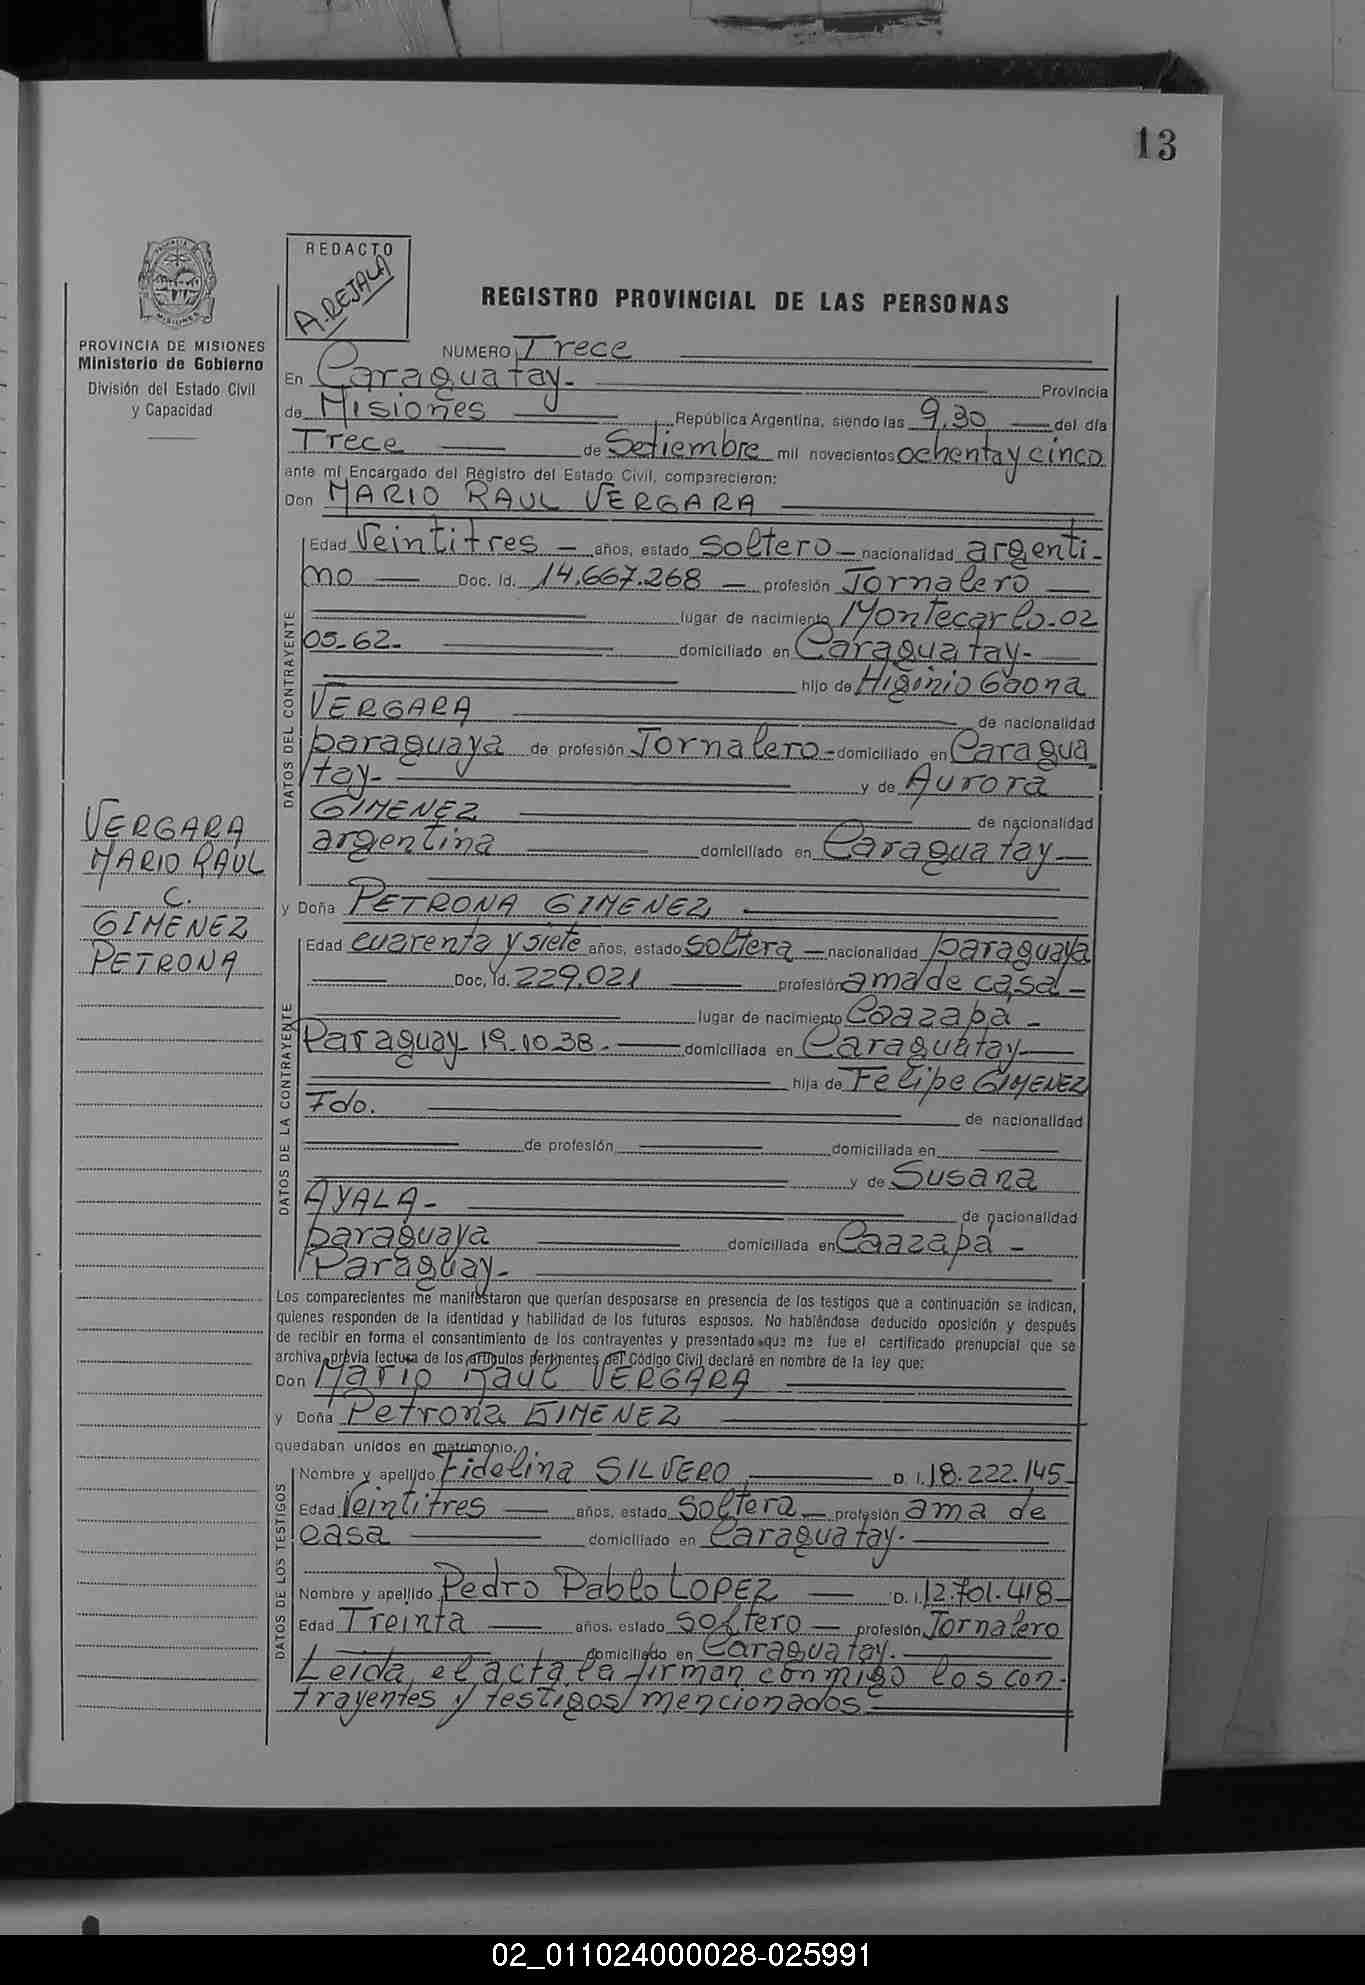 13
PROVINCIA DE MISIONES
Ministerio de Gobierno
División del Estado Civil
y Capacidad
REDACTO
A. REJALA
REGISTRO PROVINCIAL DE LAS PERSONAS
NUMERO Trece
En Caraguatay- Provincia
de Misiones República Argentina, siendo las 9.30 del día
Trece de Setiembre mil novecientos ochenta y cinco
ante mí Encargado del Registro del Estado Civil, comparecieron:
Don MARIO RAUL VERGARA
DATOS DEL CONTRAYENTE
Edad Veintitres - años, estado Soltero - nacionalidad argenti-
no Doc. Id. 14.667.268 - profesión Jornalero
lugar de nacimiento Montecarlo-02
05-62- domiciliado en Caraguatay-
hijo de Higinio Gaona
VERGARA de nacionalidad
paraguaya de profesión Jornalero- domiciliado en Caragua
tay- y de Aurora
GIMENEZ de nacionalidad
argentina domiciliado en Caraguatay
VERGARA
MARIO RAUL
C.
GIMENEZ
PETRONA
y Doña PETRONA GIMENEZ
DATOS DE LA CONTRAYENTE
Edad cuarenta y siete años, estado soltera - nacionalidad paraguaya
Doc. Id. 229.021 profesión ama de casa-
lugar de nacimiento Caazapa-
Paraguay 19-10-38- domiciliada en Caraguatay
hija de Felipe GIMENEZ
Fdo. de nacionalidad
de profesión domiciliada en
y de Susana
AYALA- de nacionalidad
paraguaya domiciliada en Caazapá-
Paraguay-
Los comparecientes me manifestaron que querían desposarse en presencia de los testigos que a continuación se indican,
quienes responden de la identidad y habilidad de los futuros esposos. No habiéndose deducido oposición y después
de recibir en forma el consentimiento de los contrayentes y presentado que me fue el certificado prenupcial que se
archiva, previa lectura de los artículos pertinentes del Código Civil declaré en nombre de la ley que:
Don Mario Raul VERGARA
y Doña Petrona GIMENEZ
quedaban unidos en matrimonio.
DATOS DE LOS TESTIGOS
Nombre y apellido Fidelina SILVERO D. I. 18.222.145
Edad Veintitres años, estado Soltera - profesión ama de
casa domiciliado en Caraguatay-
Nombre y apellido Pedro Pablo LOPEZ D. I. 12.701.418
Edad Treinta años, estado soltero - profesión Jornalero
domiciliado en Caraguatay.
Leida el acta, la firman conmigo los con-
trayentes y testigos mencionados
02_011024000028-025991